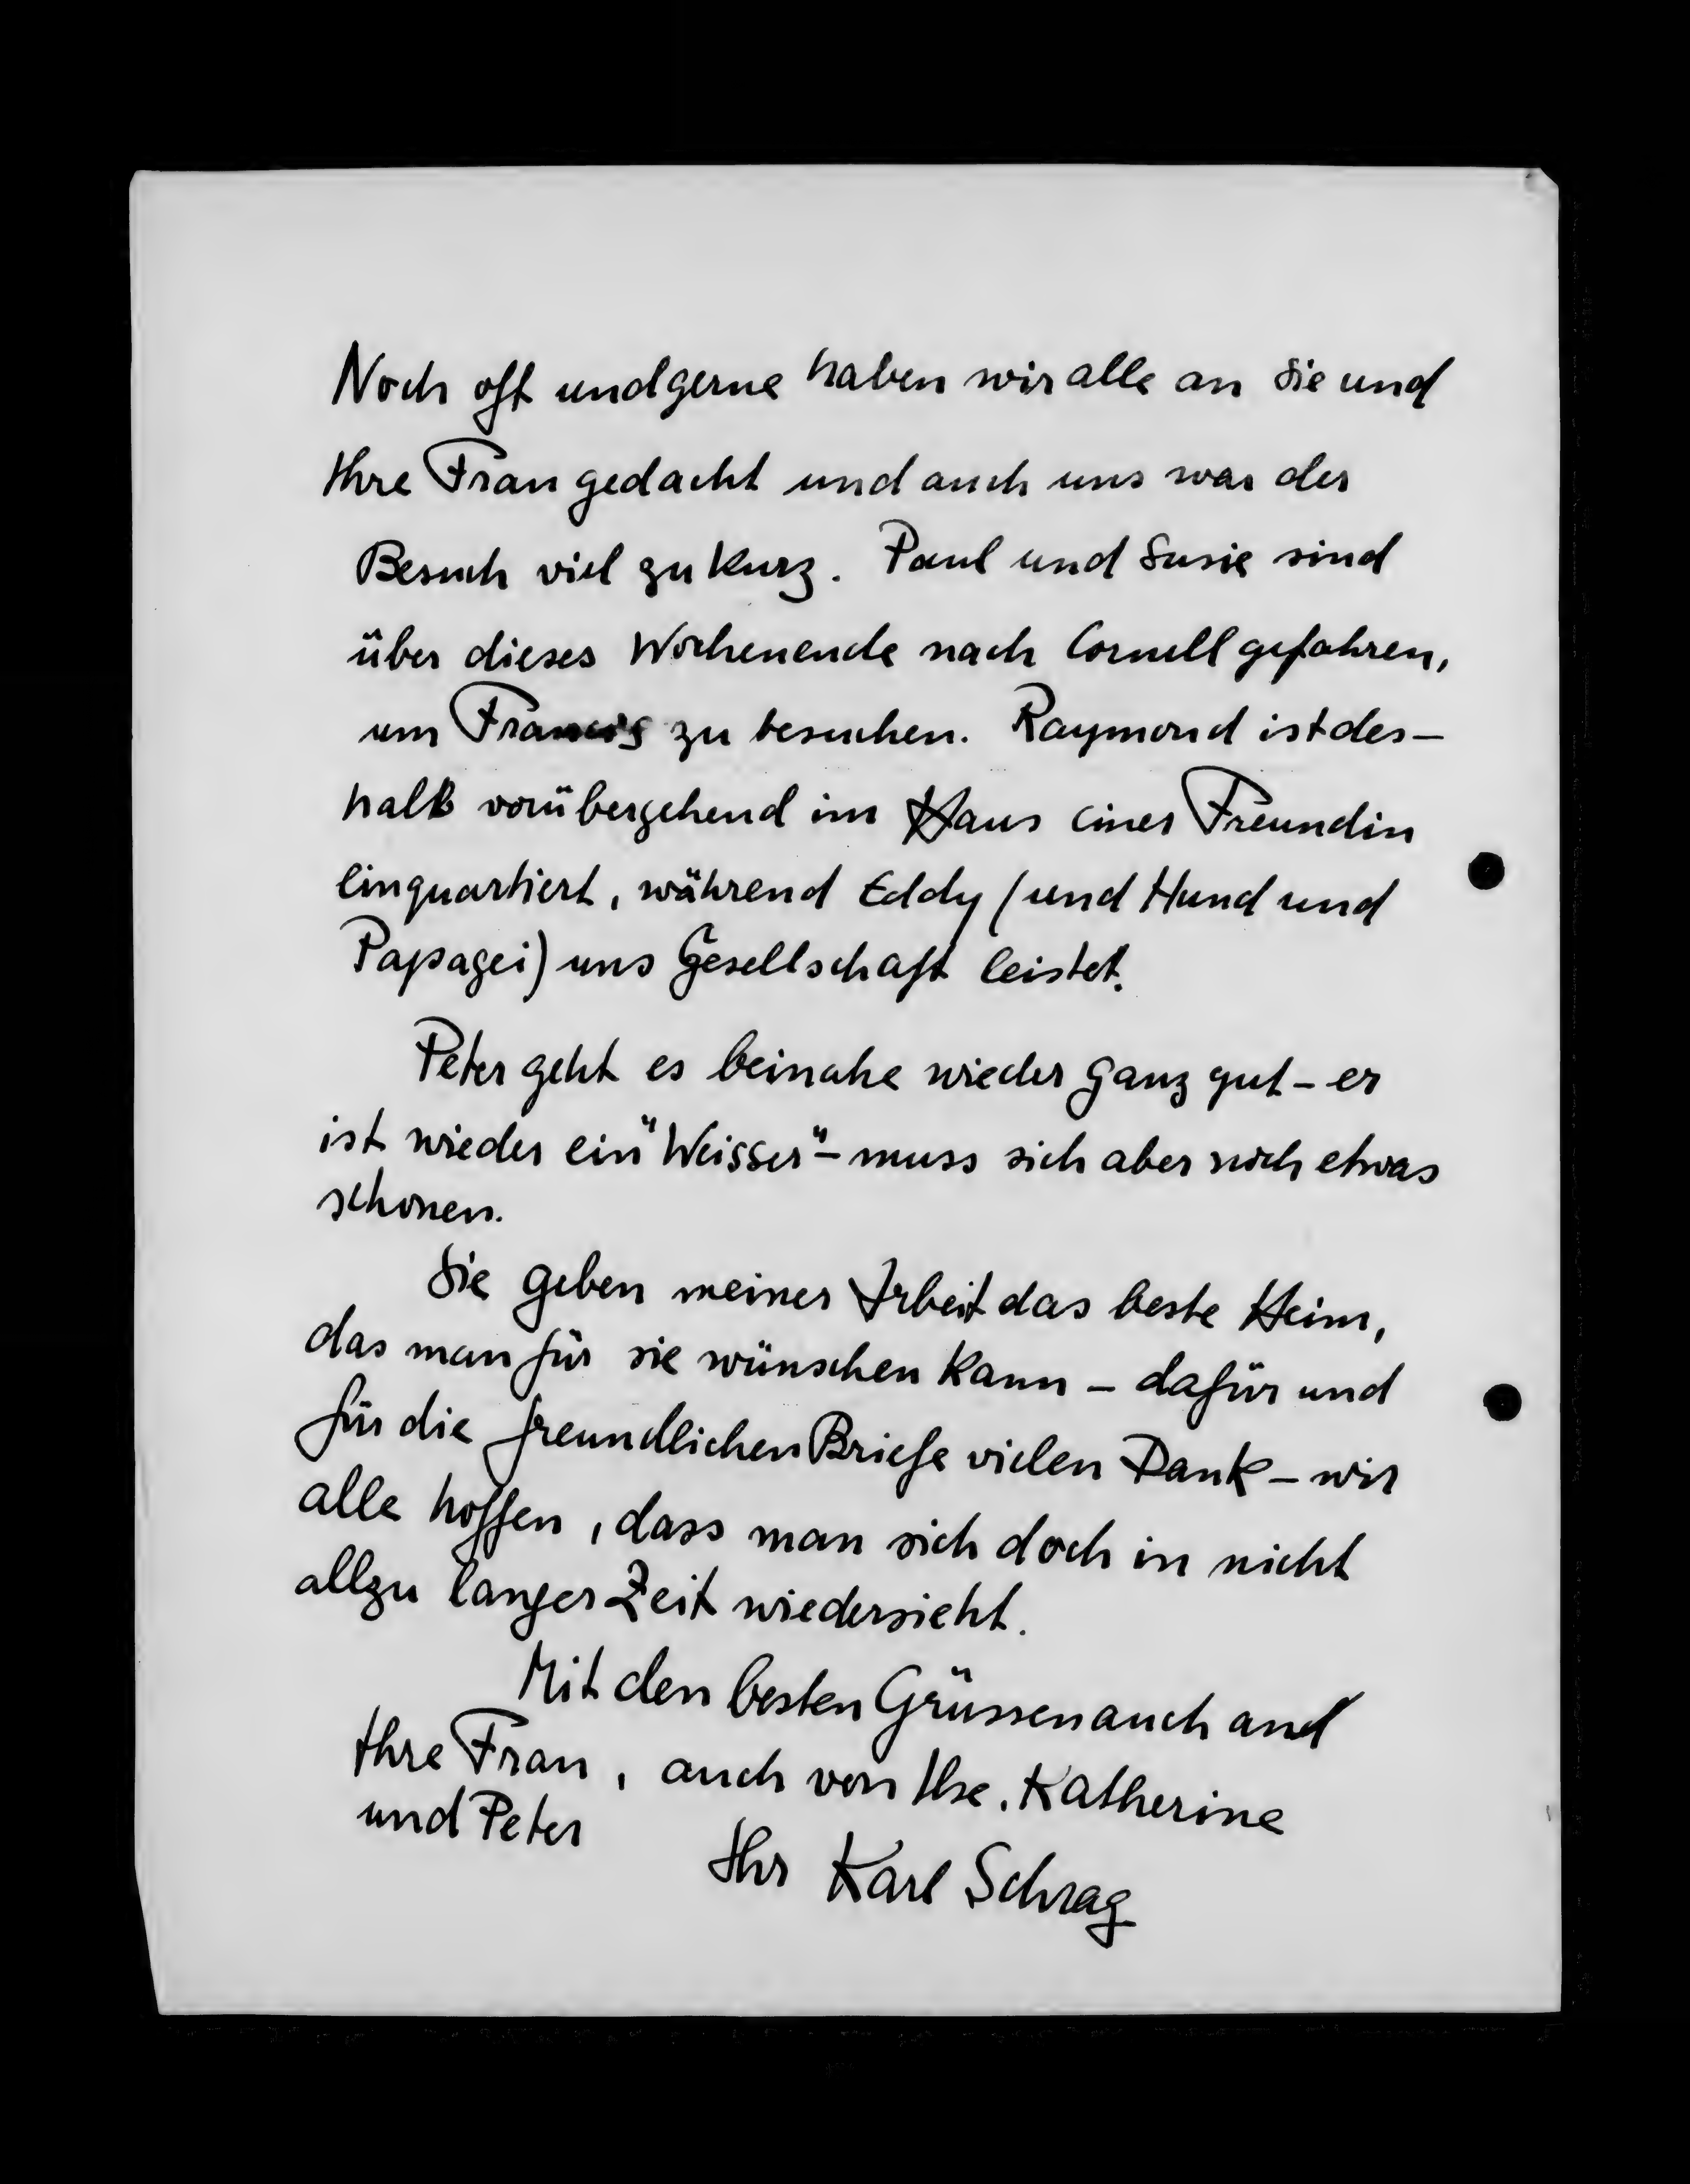 Noch oft und gerne haben wir alle an Sie und
Ihre Frau gedacht und auch uns war der
Besuch viel zu kurz. Paul und Susie sind
über dieses Wochenende nach Cornell gefahren,
um Francis zu besuchen. Raymond ist des-
halb vorübergehend im Haus einer Freundin
einquartiert, während Eddy (und Hund und
Papagei) uns Gesellschaft leistet.
Peter geht es beinahe wieder ganz gut - er
ist wieder ein "Weisser" - muss sich aber noch etwas
schonen.
Sie geben meiner Arbeit das beste Heim,
das man für sie wünschen kann - dafür und
für die freundlichen Briefe vielen Dank - wir
alle hoffen, dass man sich doch in nicht
allzu langer Zeit wiedersieht.
Mit den besten Grüssen auch and
Ihre Frau, auch von Ilse, Katherine
und Peter
Ihr Karl Schrag